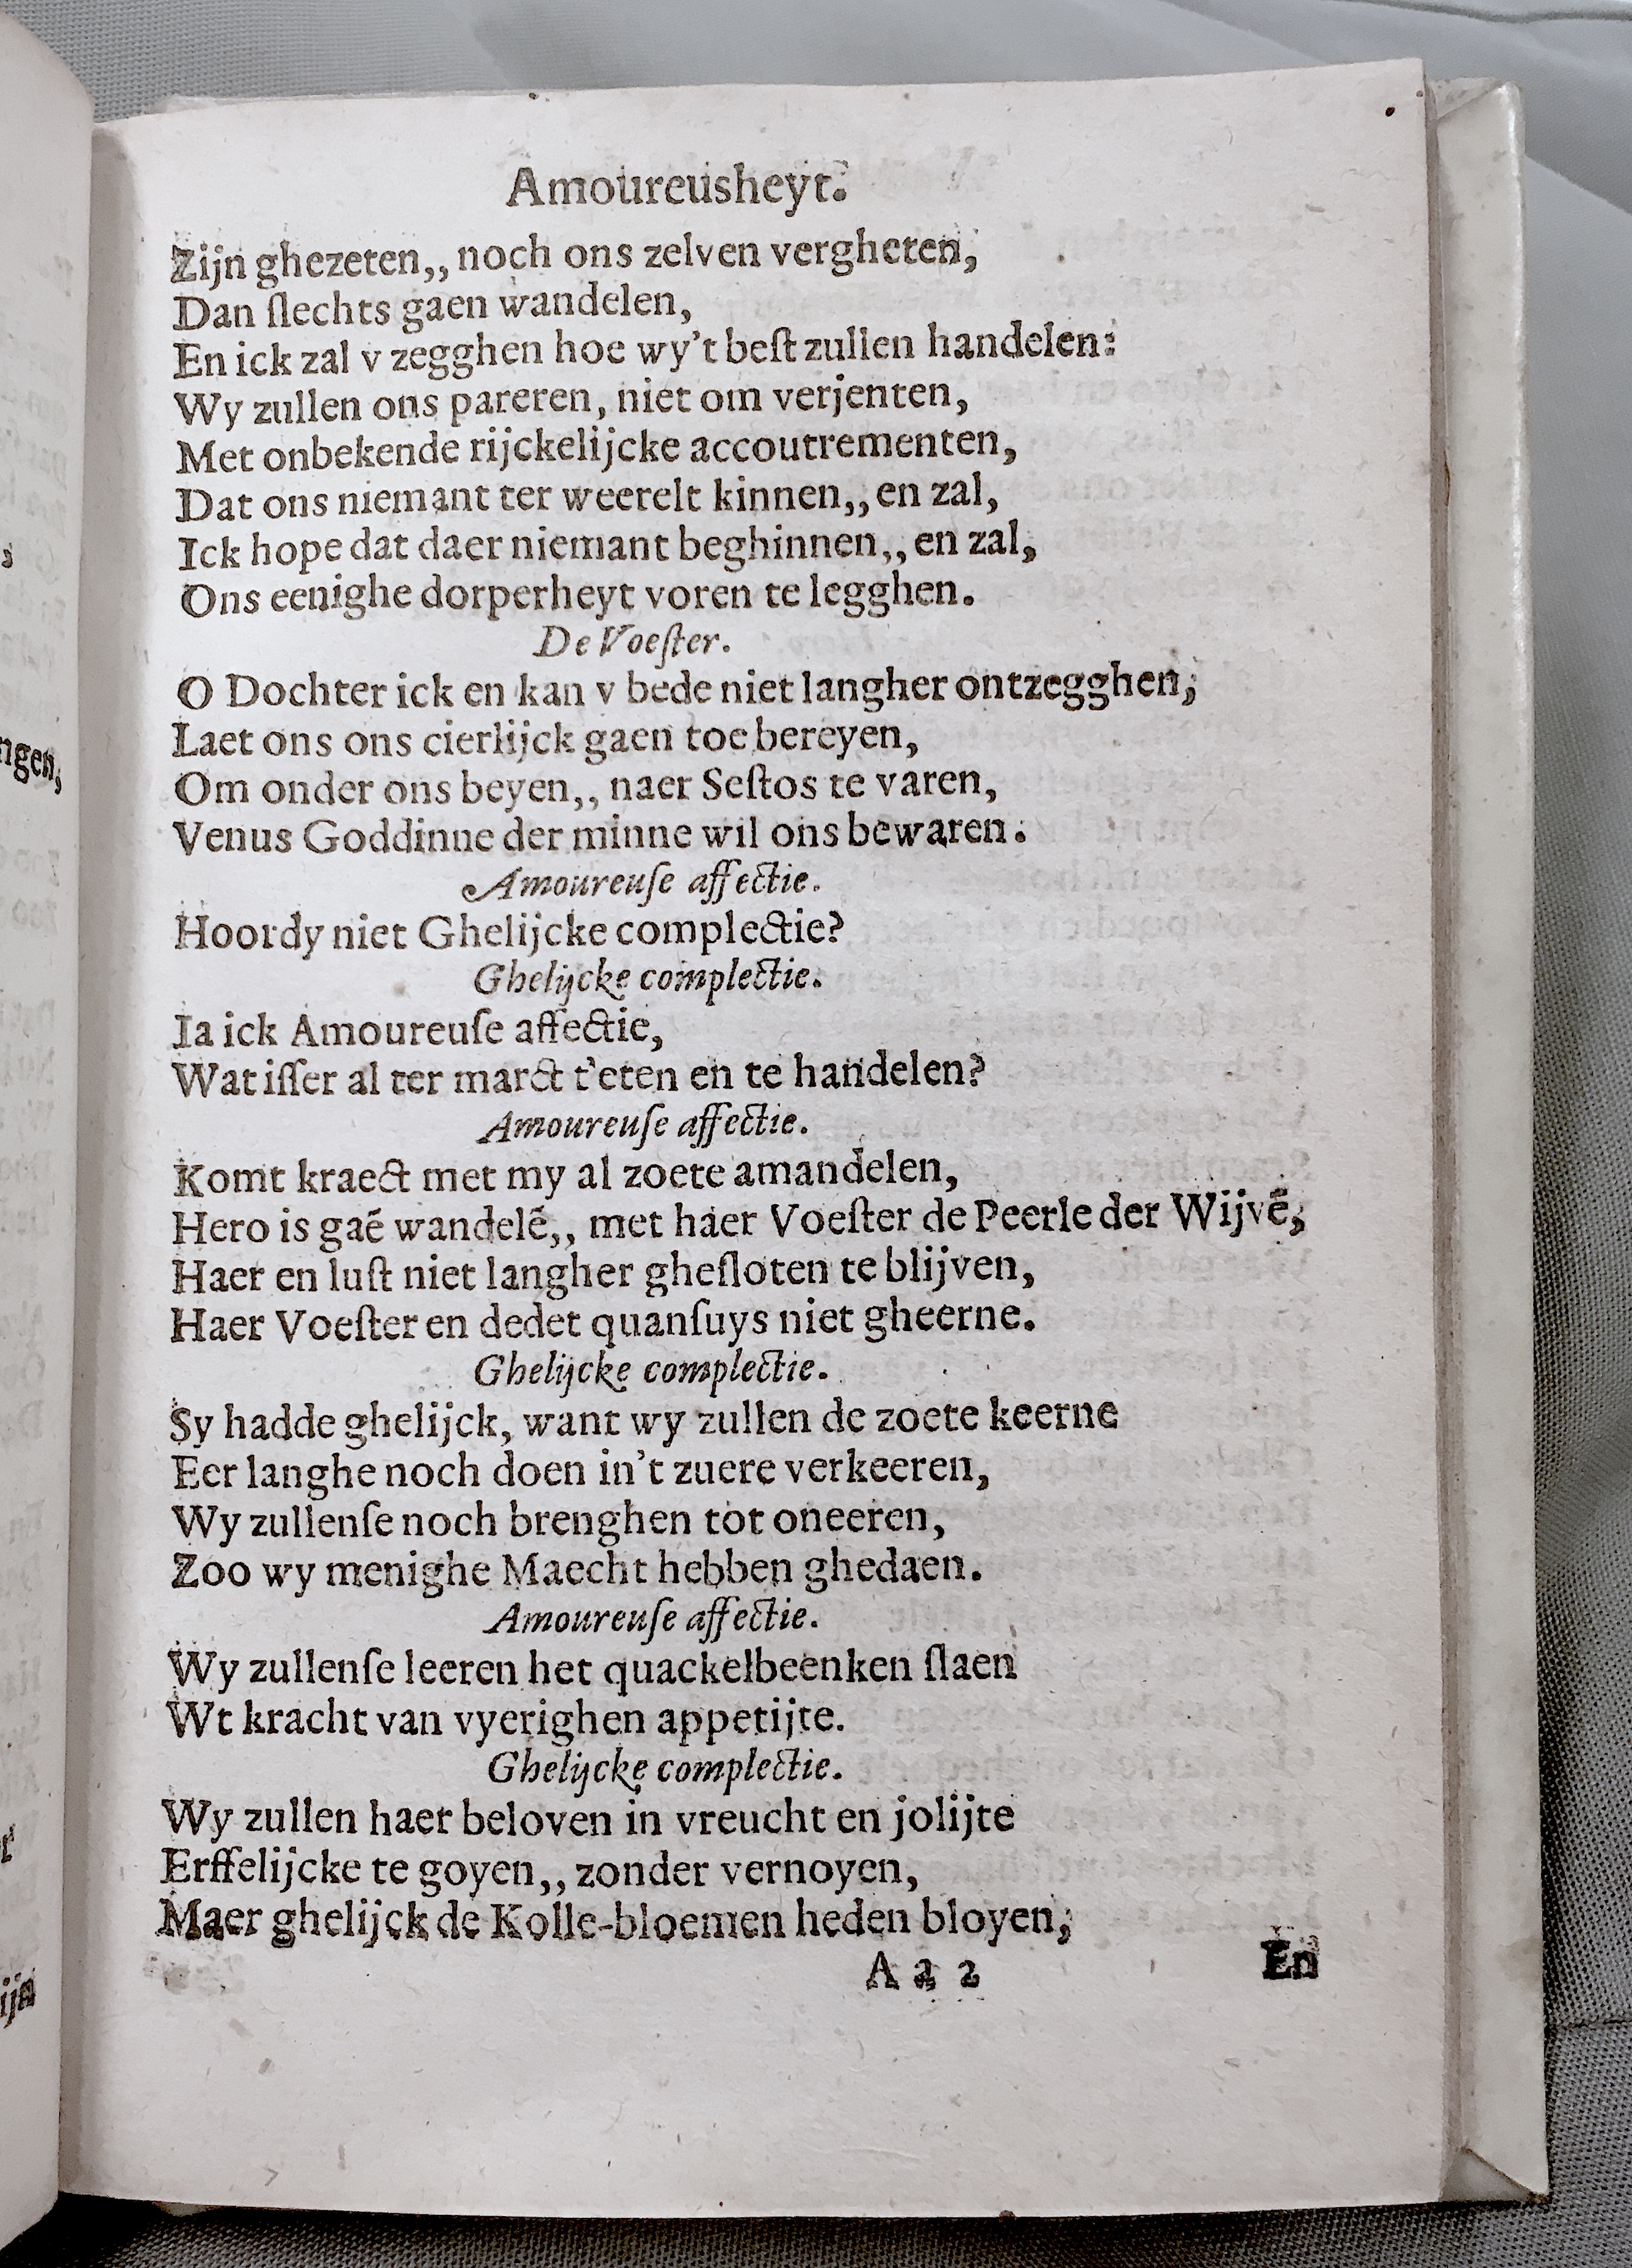 Amoureusheyt.
Zijn ghezeten,, noch ons zelven vergheten,
Dan ſlechts gaen wandelen,
En ick zal v zegghen hoe wy't beſt zullen handelen:
Wy zullen ons pareren, niet om verjenten,
Met onbekende rijckelijcke accoutrementen,
Dat ons niemant ter weerelt kinnen,, en zal,
Ick hope dat daer niemant beghinnen,, en zal,
Ons eenighe dorperheyt voren te legghen.
De Voeſter.
O Dochter ick en kan v bede niet langher ontzegghen,
Laet ons ons cierlijck gaen toe bereyen,
Om onder ons beyen,, naer Seſtos te varen,
Venus Goddinne der minne wil ons bewaren.
Amoureuſe affectie.
Hoordy niet Ghelijcke complectie?
Ghelijcke complectie.
Ia ick Amoureuſe affectie,
Wat iſſer al ter marct t'eten en te handelen?
Amoureuſe affectie.
Komt kraect met my al zoete amandelen,
Hero is gaē wandelē,, met haer Voeſter de Peerle der Wijvē,
Haer en luſt niet langher gheſloten te blijven,
Haer Voeſter en dedet quanſuys niet gheerne.
Ghelijcke complectie.
Sy hadde ghelijck, want wy zullen de zoete keerne
Eer langhe noch doen in't zuere verkeeren,
Wy zullenſe noch brenghen tot oneeren,
Zoo wy menighe Maecht hebben ghedaen.
Amoureuſe affectie.
Wy zullenſe leeren het quackelbeenken ſlaen
Wt kracht van vyerighen appetijte.
Ghelijcke complectie.
Wy zullen haer beloven in vreucht en jolijte
Erffelijcke te goyen,, zonder vernoyen,
Maer ghelijck de Kolle-bloemen heden bloyen,
A a 2 En
ngen,
ijn